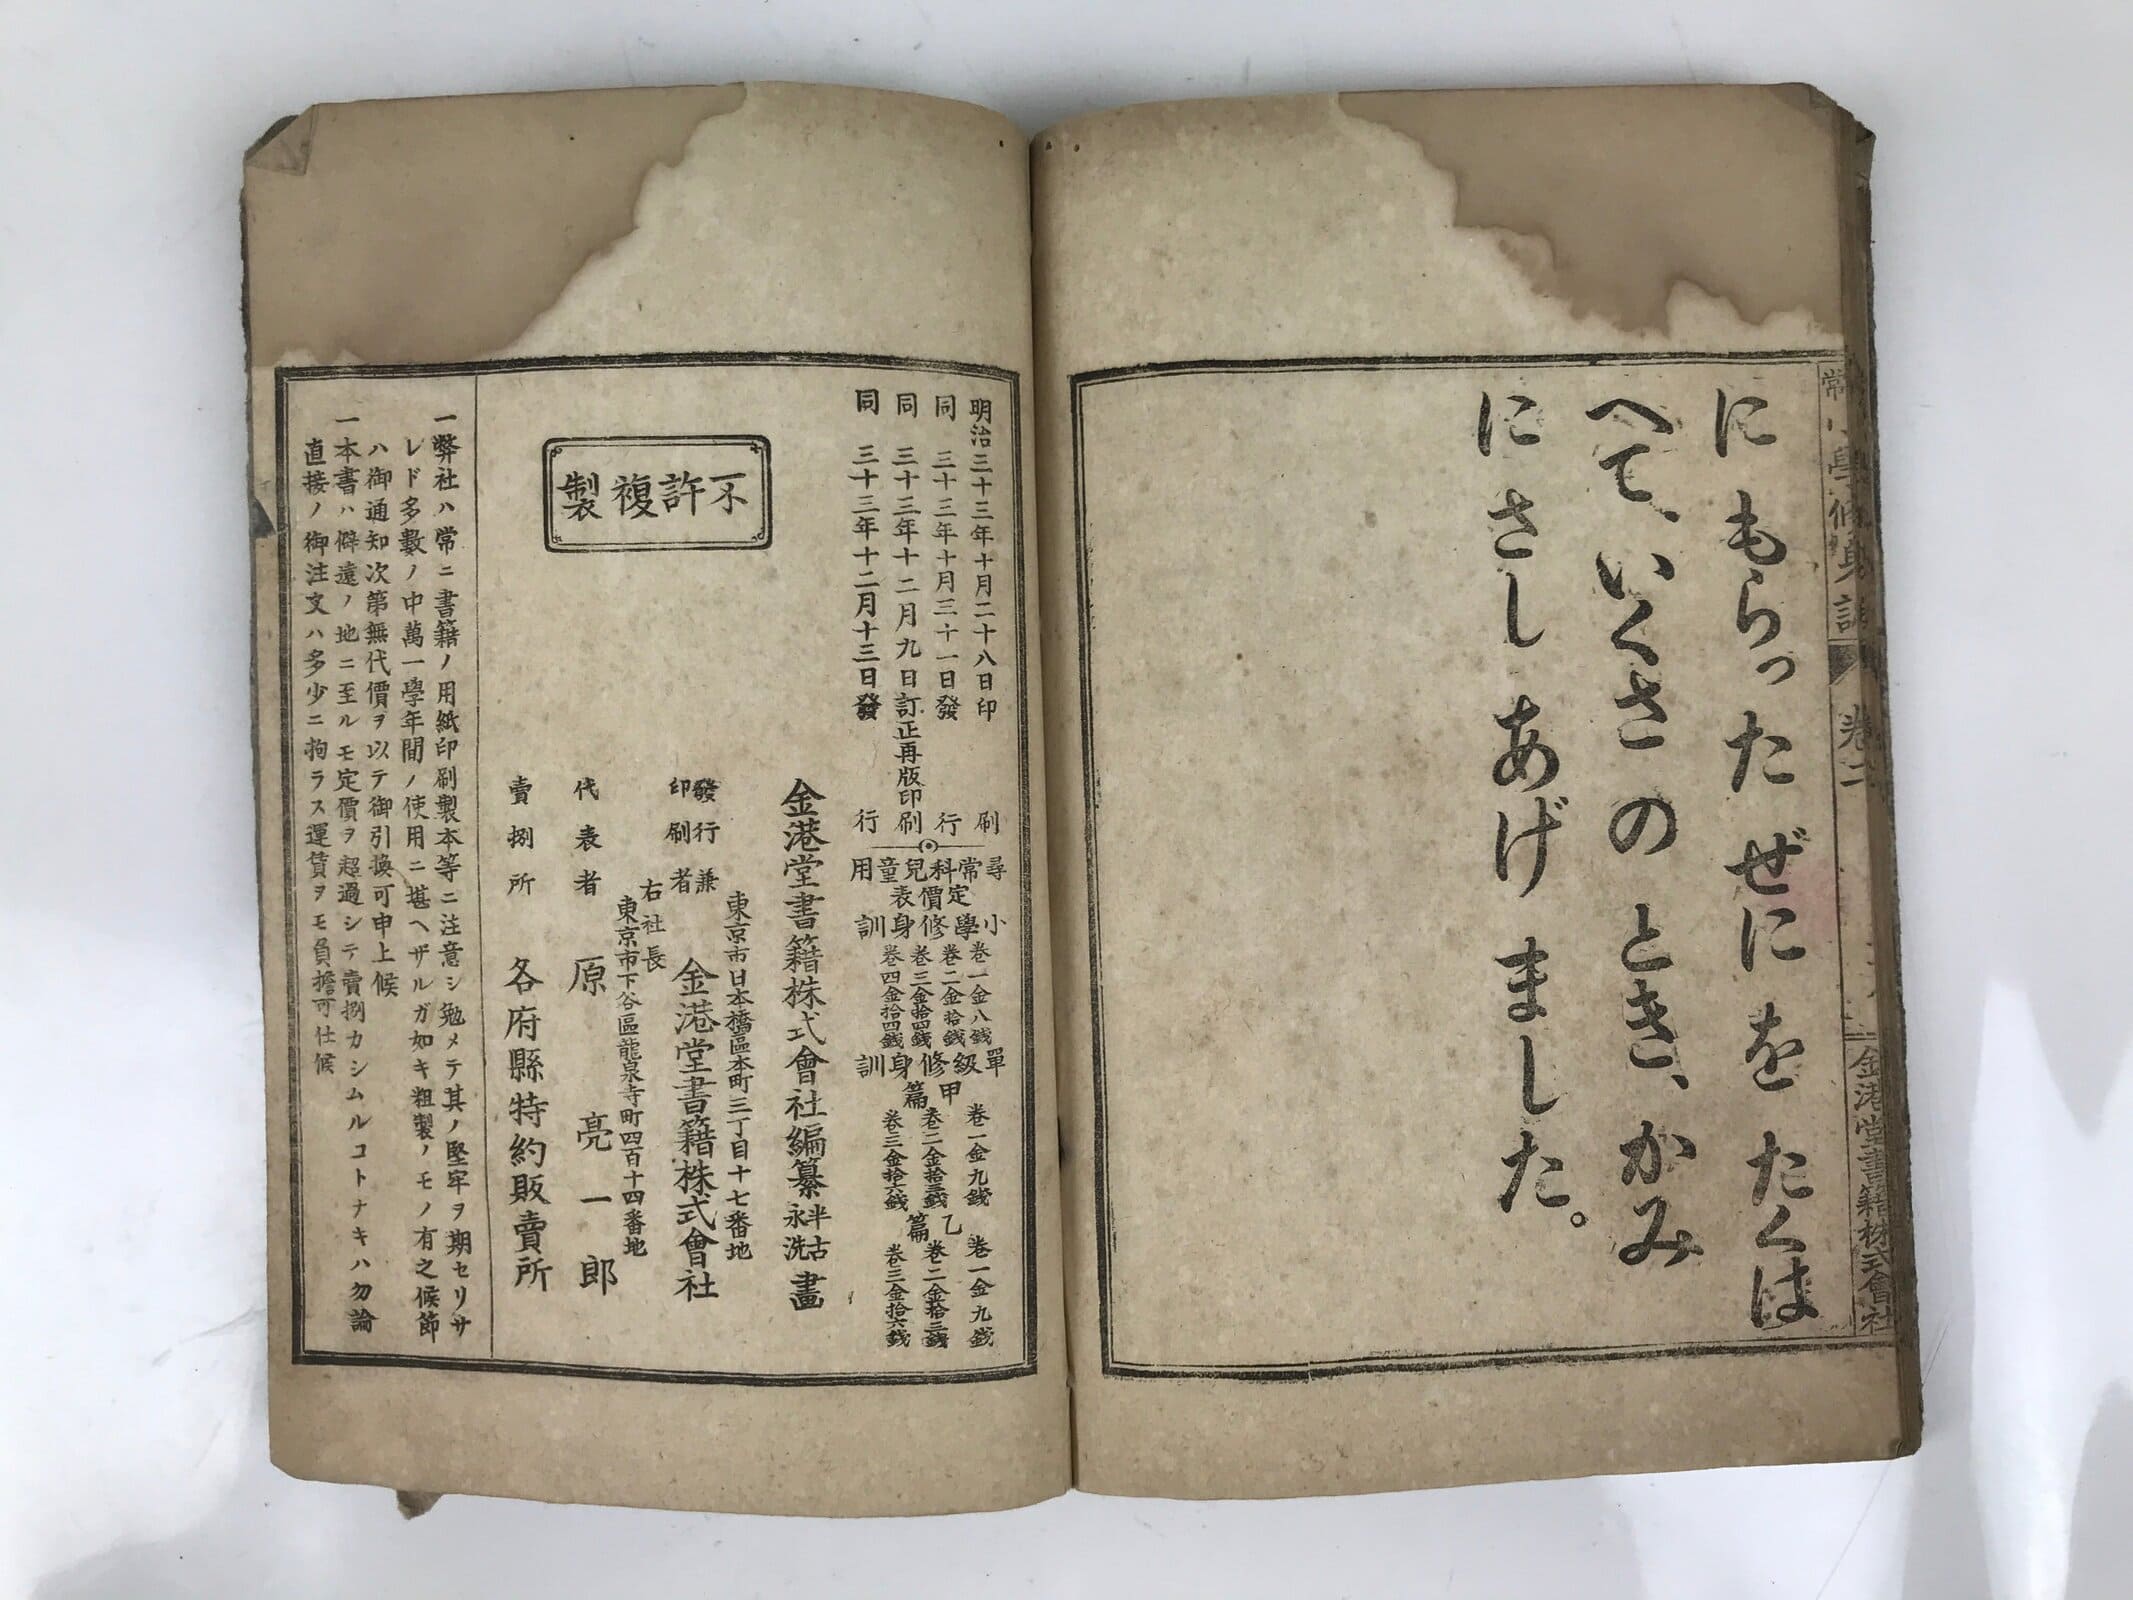 にもらったぜにをたくは
へて、いくさのとき、かみ
にさしあげました。
常小學修身訓 卷二
金港堂書籍株式會社
明治三十三年十月二十八日印刷
同 三十三年十月三十一日發行
同 三十三年十二月九日訂正再版印刷
同 三十三年十二月十三日發行
尋常科兒童用
定價表
小學修身訓
卷一金八錢
卷二金拾錢
卷三金拾四錢
卷四金拾四錢
單級修身訓
甲篇
卷一金九錢
卷二金拾三錢
卷三金拾六錢
乙篇
卷一金九錢
卷二金拾三錢
卷三金拾六錢
金港堂書籍株式會社編纂
半古
永洗
畫
不許複製
東京市日本橋區本町三丁目十七番地
發行兼
印刷者
金港堂書籍株式會社
右社長
東京市下谷區龍泉寺町四百十四番地
代表者 原亮一郎
賣捌所 各府縣特約販賣所
一弊社ハ常ニ書籍ノ用紙印刷製本等ニ注意シ勉メテ其ノ堅牢ヲ期セリサ
レド多數ノ中萬一學年間ノ使用ニ堪ヘザルガ如キ粗製ノモノ有之候節
ハ御通知次第無代價ヲ以テ御引換可申上候
一本書ハ僻遠ノ地ニ至ルモ定價ヲ超過シテ賣捌カシムルコトナキハ勿論
直接ノ御注文ハ多少ニ拘ラス運賃ヲモ負擔可仕候